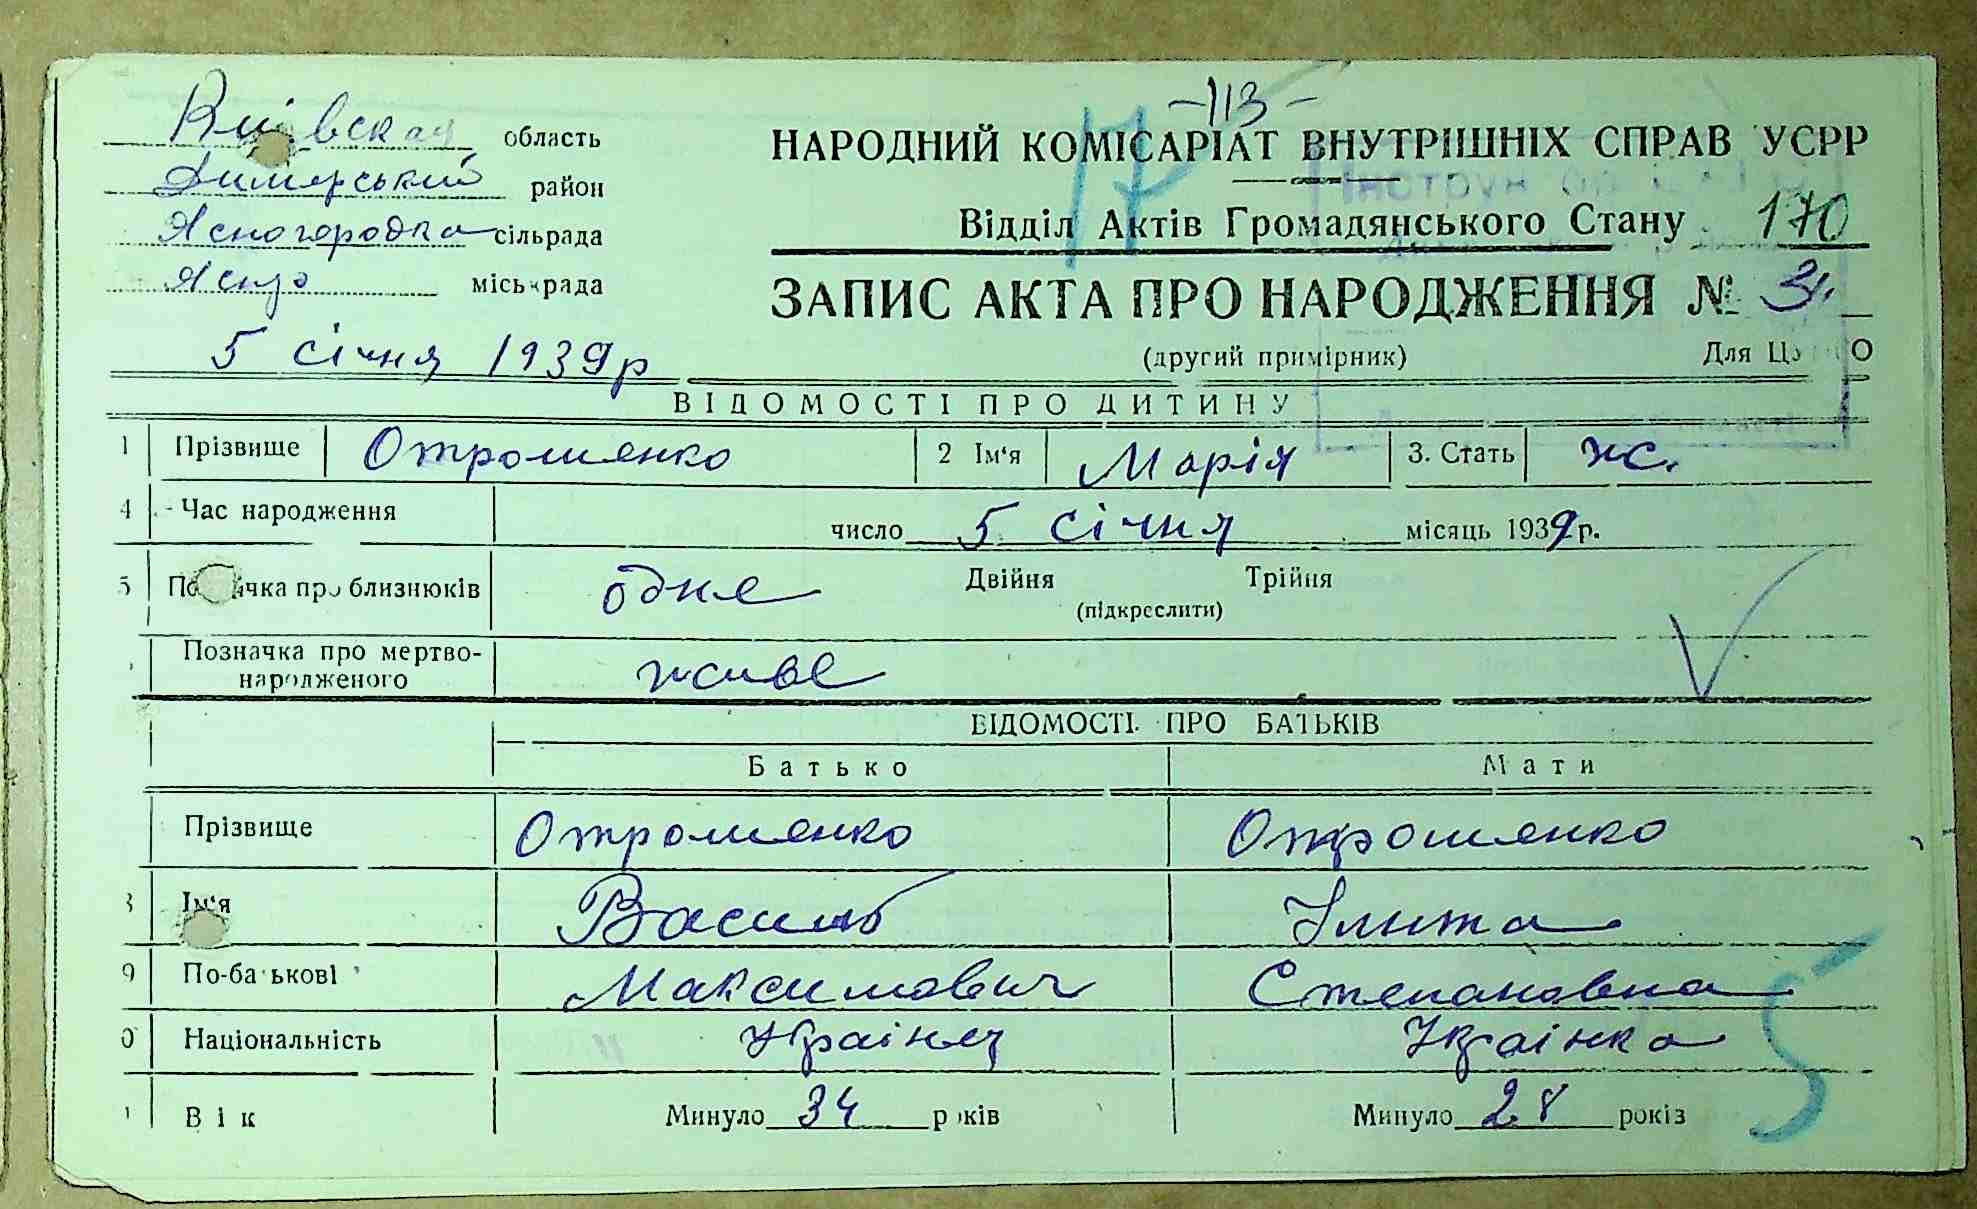 -113-
Київская область
Димерський район
Ясногородка сільрада
міськрада
5 січня 1939 р
НАРОДНИЙ КОМІСАРІАТ ВНУТРІШНІХ СПРАВ УСРР
Відділ Актів Громадянського Стану 170
ЗАПИС АКТА ПРО НАРОДЖЕННЯ № 3.
(другий примірник) Для
ВІДОМОСТІ ПРО ДИТИНУ
1 Прізвище Отрошенко 2 Ім'я Марія 3. Стать ж.
4 Час народження число 5 січня місяць 1939 р.
5 Позначка про близнюків одне Двійня Трійня
(підкреслити)
Позначка про мертво-
народженого живе
ВІДОМОСТІ ПРО БАТЬКІВ
Батько Мати
Прізвище Отрошенко Отрошенко
8 Ім'я Василь Улита
9 По-батькові Максимович Степановна
0 Національність Українец Українка
1 Вік Минуло 34 років Минуло 28 років
5